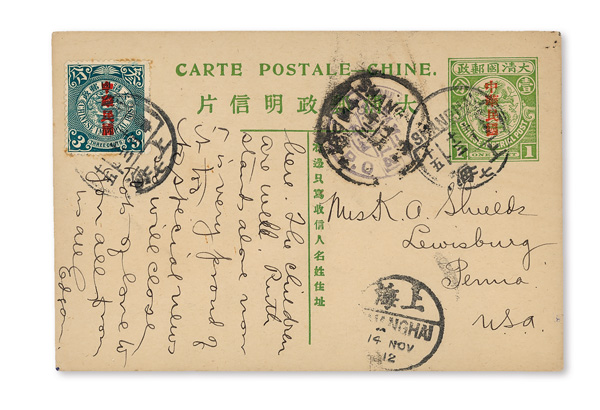 CARTE POSTALE CHINE.
大清郵政明信片
大清國郵政
壹
中華民國
1
中華民國
THREE CENTS
3
此邊只寫收信人名姓住址
here. The children
are well. Ruth
stands alone now
& is very proud of
it
special news
will close
of love to
you all from
us all
Miss K. A. Shields
Lewisburg
Penna.
U.S.A.
上海
SHANGHAI
14 NOV
12
上海
SHANGHAI